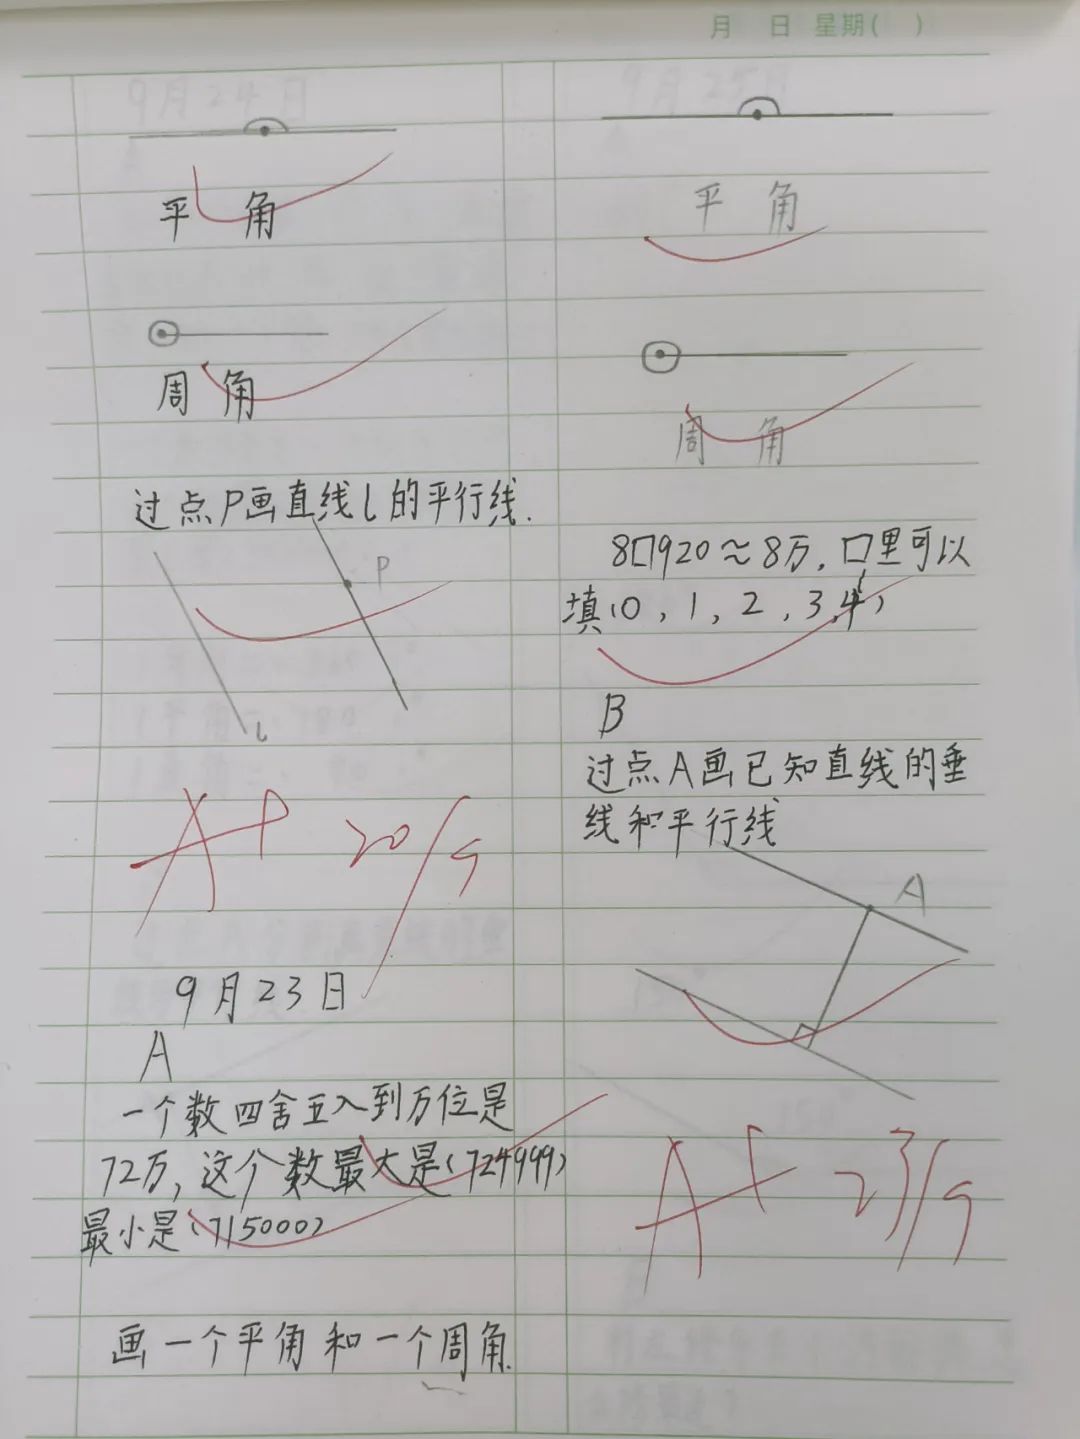 月 日 星期( )
平 角
周 角
过点P画直线l的平行线.
P
l
A+ 20/9
9月23日
A
一个数四舍五入到万位是
72万,这个数最大是(724999)
最小是(715000)
画一个平角和一个周角.
平 角
周 角
8口920≈8万,口里可以
填(0,1,2,3,4)
B
过点A画已知直线的垂
线和平行线
A
A+ 23/9